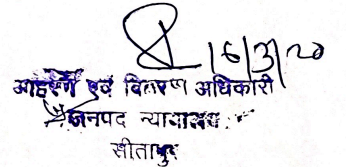 16/3/20
आहरण एवं वितरण अधिकारी
जनपद न्यायालय
सीतापुर